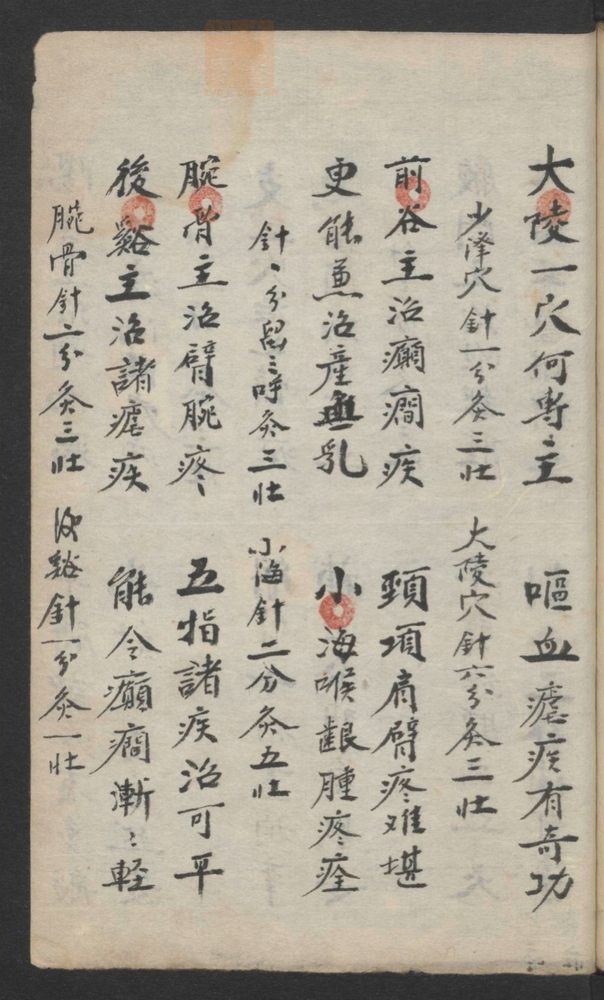 大陵一穴何專主　嘔血瘧疾有奇功
少澤穴針一分灸三壯　大陵穴針六分灸三壯
前谷主治癲癇疾　頸項肩臂疼难堪
更能兼治產無乳　小海喉齦腫疼痊
針一分留三呼灸三壯　小海針二分灸五壯
腕骨主治臂腕疼　五指諸疾治可平
後谿主治諸瘧疾　能令癲癇漸〻輕
腕骨針二分灸三壯　後谿針一分灸一壯